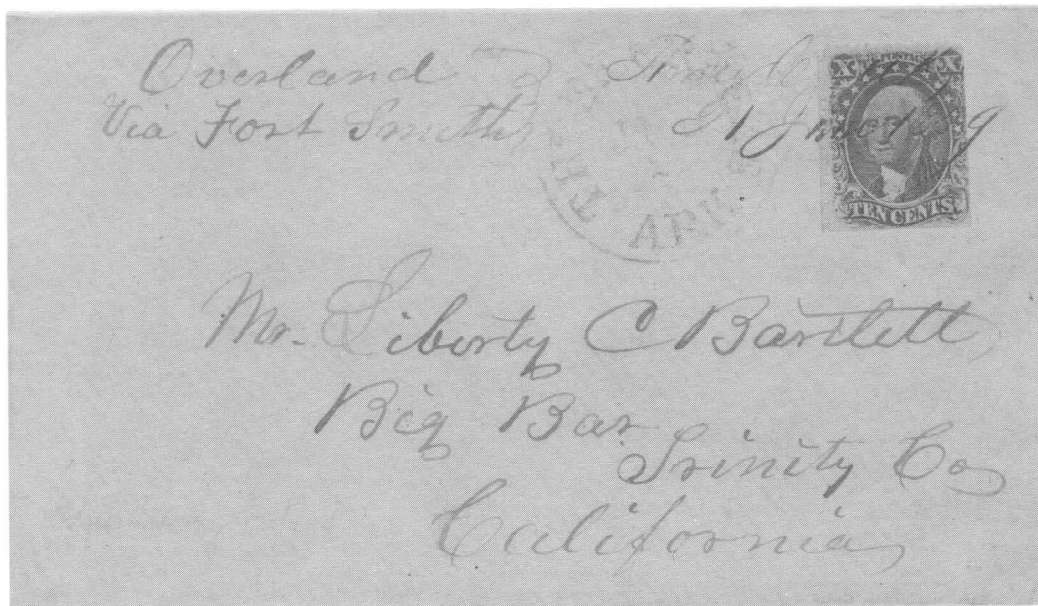 Overland
Via Fort Smith
ARK
U.S. POSTAGE
X X
TEN CENTS
Mr. Liberty C Bartlett
Big Bar
Trinity Co
California